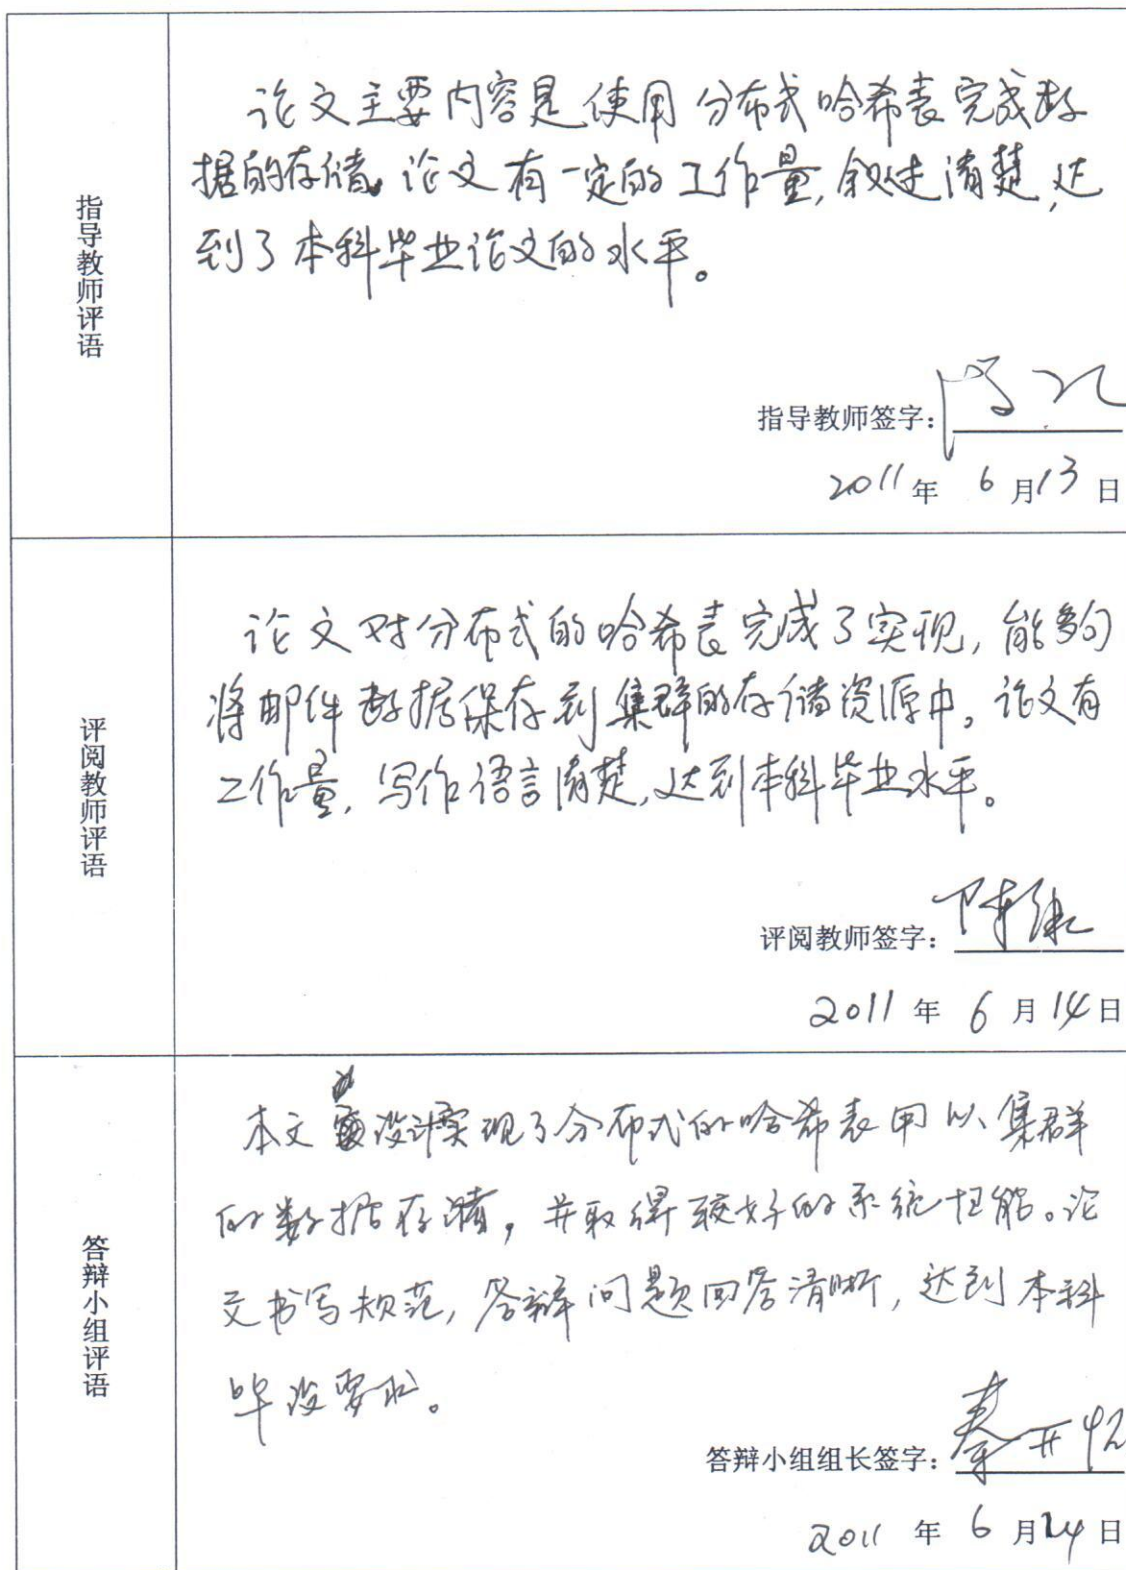 指导教师评语
论文主要内容是使用分布式哈希表完成数
据的存储。论文有一定的工作量,叙述清楚,达
到了本科毕业论文的水平。
指导教师签字:
2011年 6月13日
评阅教师评语
论文对分布式的哈希表完成了实现,能够
将邮件数据保存到集群的存储资源中。论文有
工作量,写作语言清楚,达到本科毕业水平。
评阅教师签字:陈康
2011年 6月14日
答辩小组评语
本文设计实现了分布式的哈希表用以集群
的数据存储,并取得较好的系统性能。论
文书写规范,答辩问题回答清晰,达到本科
毕设要求。
答辩小组组长签字:秦开怀
2011年 6月14日